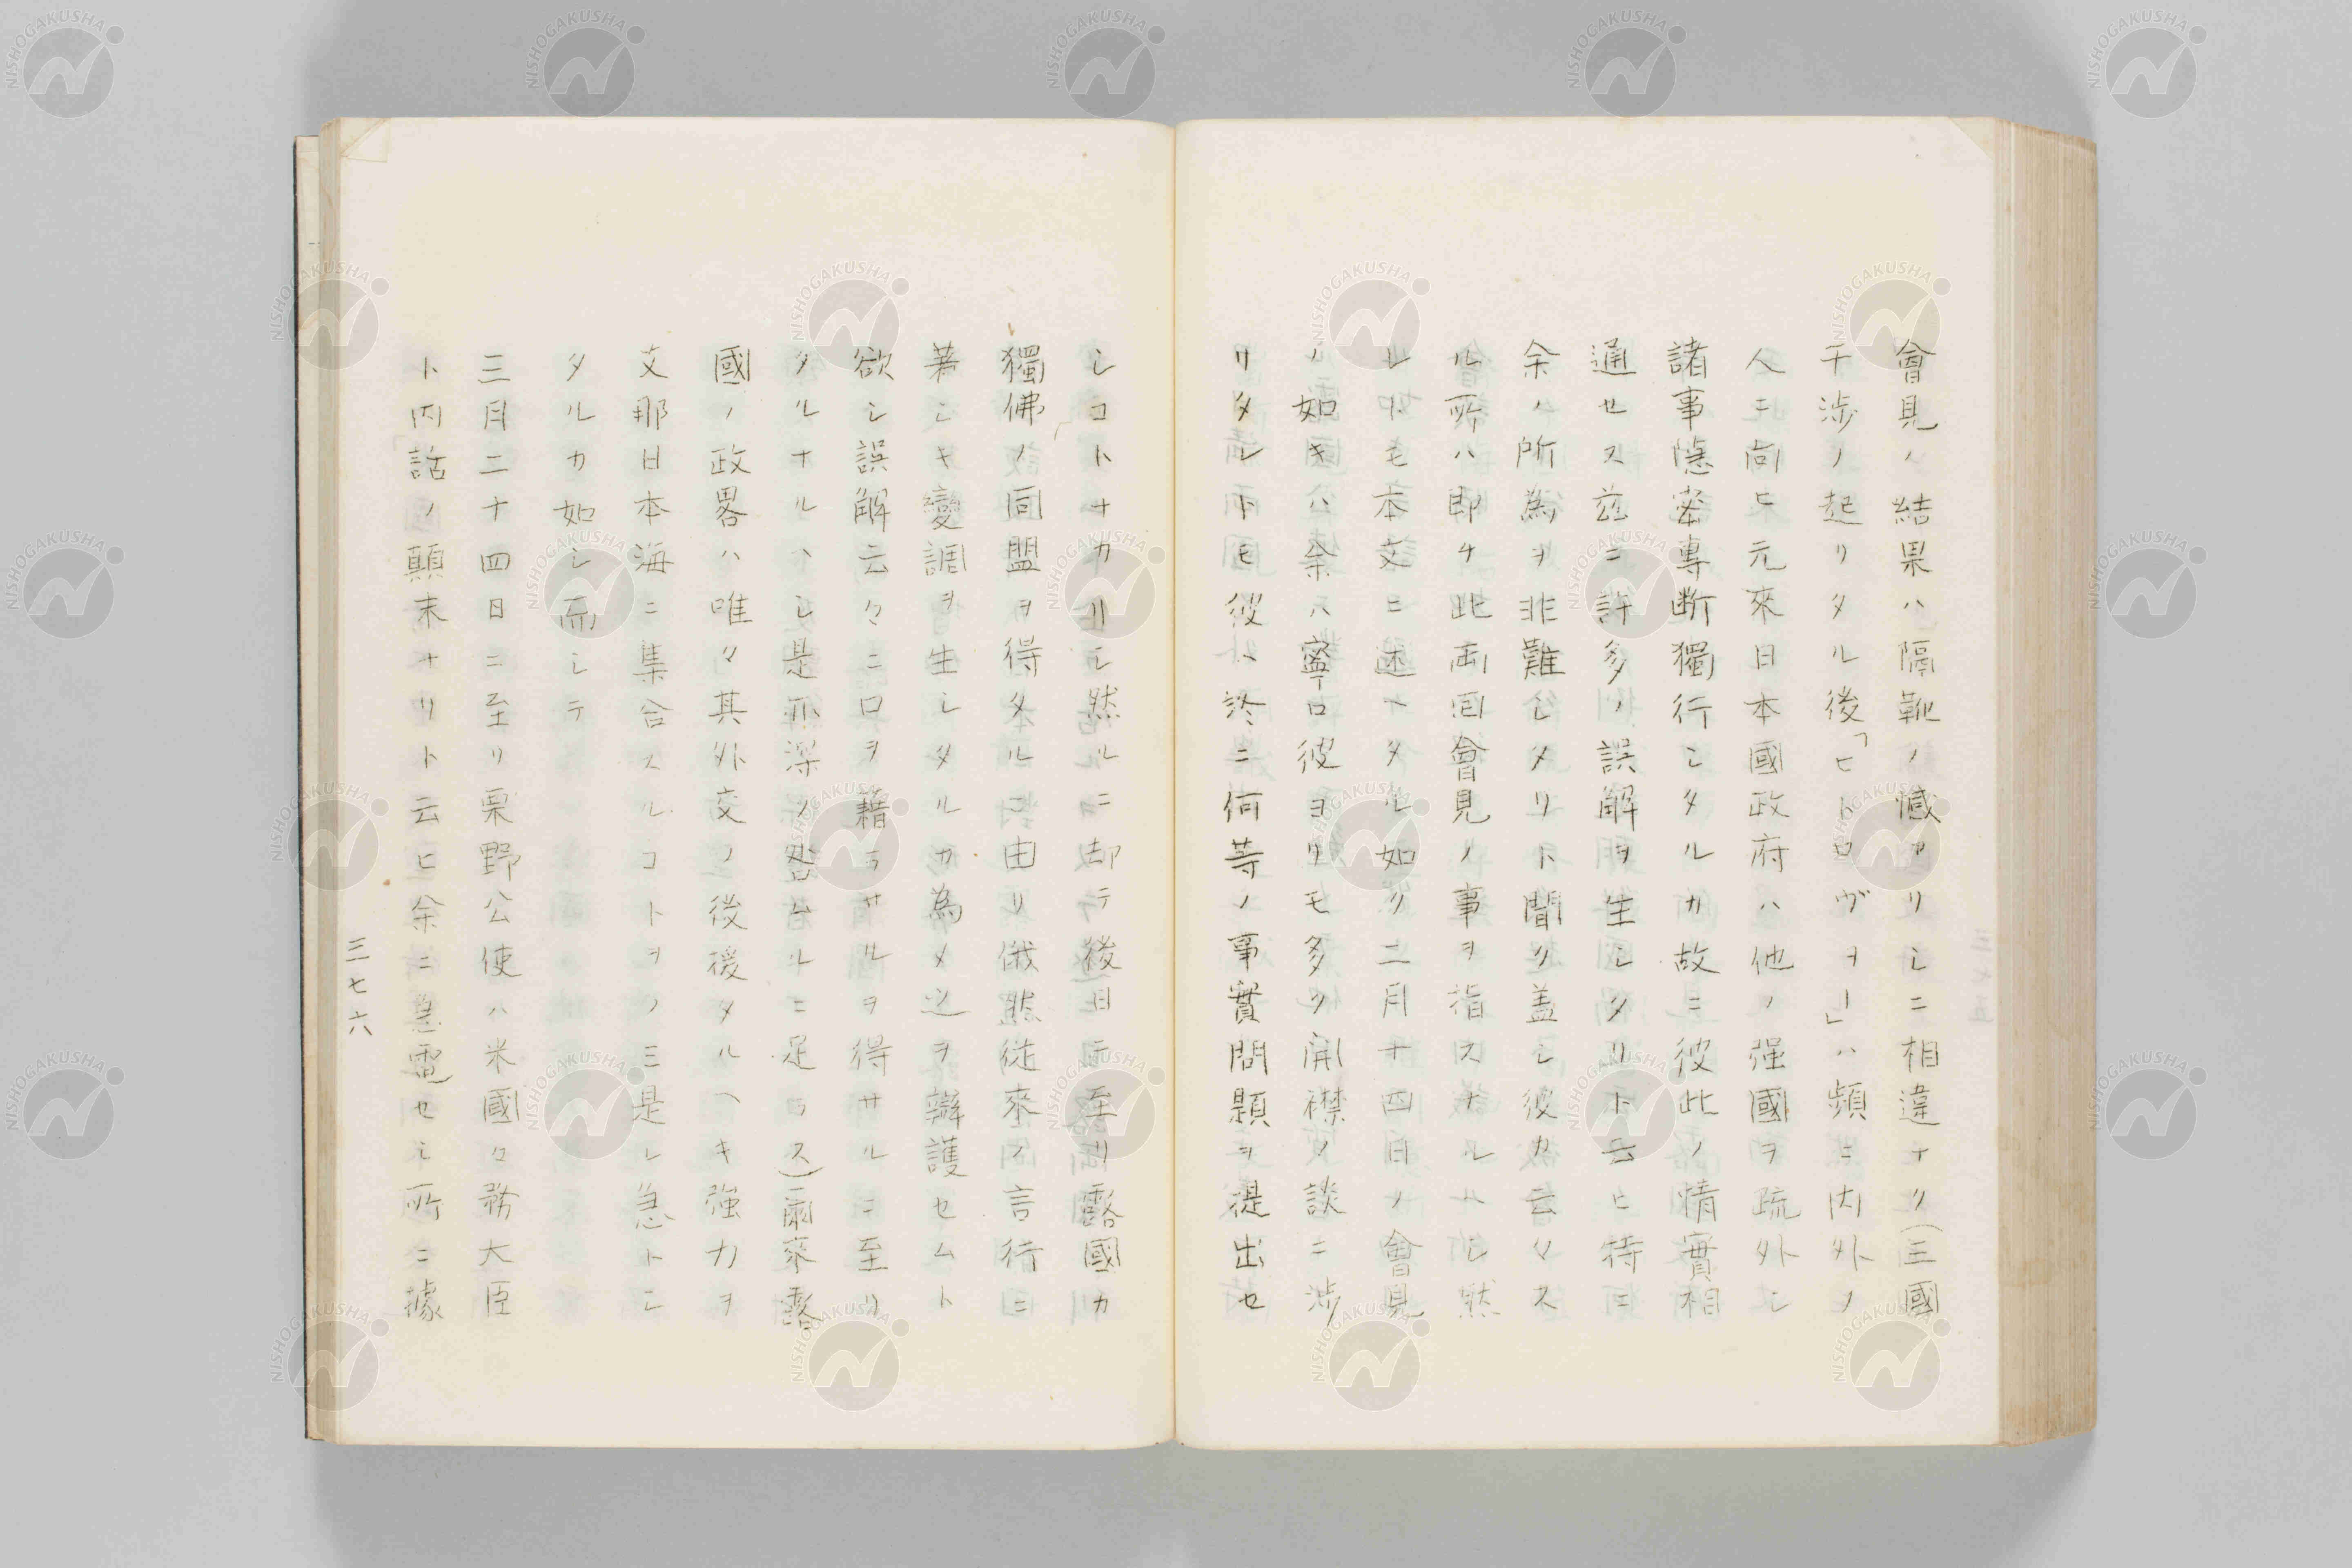 會見ノ結果ハ隔靴ノ憾アリシニ相違ナク(三國
干渉ノ起リタル後「ヒトロヴヲー」ハ頻ニ内外ノ
人ニ向ヒ元來日本國政府ハ他ノ强國ヲ疏外シ
諸事隱密專断獨行シタルカ故ニ彼此ノ情實相
通セス茲ニ許多ノ誤解ヲ生シタリト云ヒ特ニ
余ノ所為ヲ非難シタリト聞ク盖シ彼カ云々ス
ル所ハ即チ此両回會見ノ事ヲ指スナルヘシ然
レトモ本文ニ述ヘタル如ク二月十四日ノ會見
ノ如キハ余ハ寧ロ彼ヨリモ多ク開襟ノ談ニ渉
リタレトモ彼ハ終ニ何等ノ事實問題ヲ提出セ
シコトナカリシ然ルニ却テ後日ニ至リ露國カ
獨佛ノ同盟ヲ得タルニ由リ俄然從來ノ言行ニ
著シキ變調ヲ生シタルカ為メ之ヲ辯護セムト
欲シ誤解云々ニ口ヲ藉ラサルヲ得サルニ至リ
タルナルヘシ是亦深ク咎ムルニ足ラス)爾來露
國ノ政畧ハ唯々其外交ノ後援タルヘキ强力ヲ
支那日本海ニ集合スルコトヲノミ是レ急トシ
タルカ如シ而シテ
三月二十四日ニ至リ栗野公使ハ米國々務大臣
ト内話ノ顛末ナリト云ヒ余ニ急電セシ所ニ據
三七六
NISHOGAKUSHA